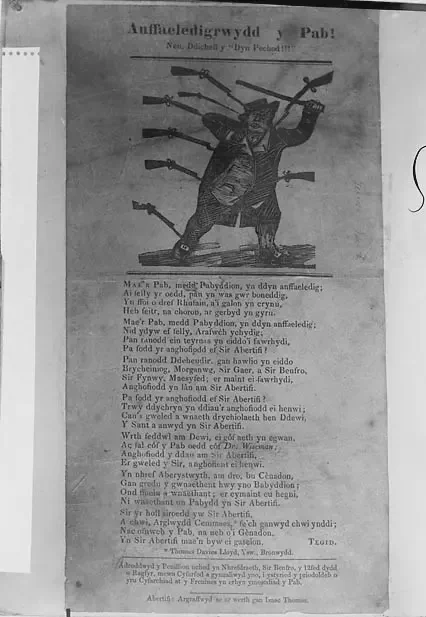 Anffaeledigrwydd y Pab!
Neu, Ddichell y "Dyn Pechod!!!"
MAE'R Pab, medd Pabyddion, yn ddyn anffaeledig;
Ai felly yr oedd, pan yn was gwr boneddig,
Yn ffoi o dref Rhufain, a'i galon yn crynu,
Heb feitr, na choron, ar gerbyd yn gyru.
Mae'r Pab, medd Pabyddion, yn ddyn anffaeledig;
Nid ydyw ef felly, Arafwch ychydig;
Pan ranodd ein teyrnas yn eiddo'i fawrhydi,
Pa fodd yr anghofiodd ef Sir Abertifi?
Pan ranodd Ddeheudir, gan hawlio yn eiddo
Brycheiniog, Morganwg, Sir Gaer, a Sir Benfro,
Sir Fynwy, Maesyfed; er maint ei fawrhydi,
Anghofiodd yn lân am Sir Abertifi.
Pa fodd yr anghofiodd ef Sir Abertifi?
Trwy ddychryn yn ddiau'r anghofiodd ei henwi;
Can's gweled a wnaeth drychiolaeth hen Ddewi,
Y Sant a anwyd yn Sir Abertifi.
Wrth feddwl am Dewi, ei gôf aeth yn egwan,
Ac fal côf y Pab oedd côf Dr. Wiseman;
Anghofiodd y ddau am Sir Abertifi,
Er gweled y Sir, anghofient ei henwi.
Yn nhref Aberystwyth, am dro, bu Cènadon,
Gan gredu y gwnaethent hwy yno Babyddion;
Ond ffaelu a wnaethant; er cymaint eu hegni,
Ni wnaethant un Pabydd yn Sir Abertifi.
Sir yr hoff siroedd yw Sir Abertifi,
A chwi, Arglwydd Cemmaes,* fe'ch ganwyd chwi ynddi;
Nac ofnwch y Pab, na neb o'i Gènadon,
Yn Sir Abertifi mae'n byw ei gaseion. TEGID.
* Thomas Davies Lloyd, Ysw., Bronwydd.
Adroddwyd y Penillion uchod yn Nhrefdraeth, Sir Benfro, y 12fed dydd
o Ragfyr, mewn Cyfarfod a gynnaliwyd yno, i ystyried y priodoldeb o
yru Cyfarchiad at y Frenines yn erbyn ymosodiad y Pab.
Abertifi: Argraffwyd ac ar werth gan Isaac Thomas.